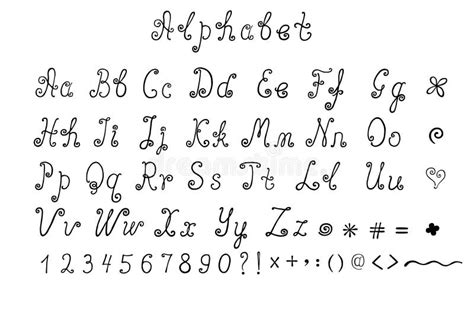 Alphabet
Aa Bb Cc Dd Ee Ff Gg
Hh Ii Jj Kk Mm Nn Oo
dreamstime
Pp Qq Rr Ss Tt Ll Uu
Vv Ww Xx Yy Zz * # =
1 2 3 4 5 6 7 8 9 0 ? ! x + , : ( ) @ < >